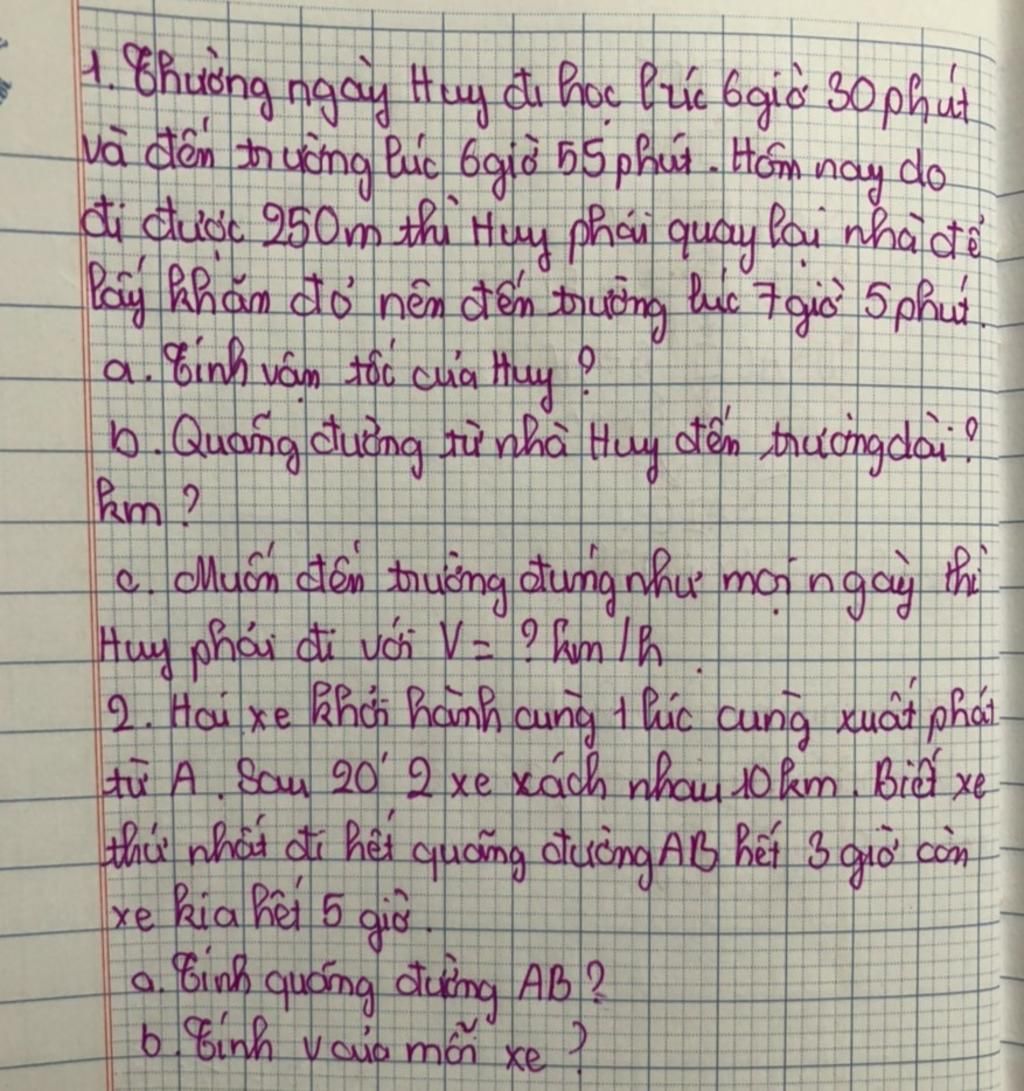 1. Thường ngày Huy đi học lúc 6 giờ 30 phút
và đến trường lúc 6 giờ 55 phút. Hôm nay do
đi được 250m thì Huy phải quay lại nhà để
lấy khăn đỏ nên đến trường lúc 7 giờ 5 phút.
a. Tính vận tốc của Huy?
b. Quãng đường từ nhà Huy đến trường dài?
km?
c. Muốn đến trường đúng như mọi ngày thì
Huy phải đi với V = ? km/h.
2. Hai xe khởi hành cùng 1 lúc cùng xuất phát
từ A. Sau 20' 2 xe xách nhau 10 km. Biết xe
thứ nhất đi hết quãng đường AB hết 3 giờ còn
xe kia hết 5 giờ.
a. Tính quãng đường AB?
b. Tính v của mỗi xe?